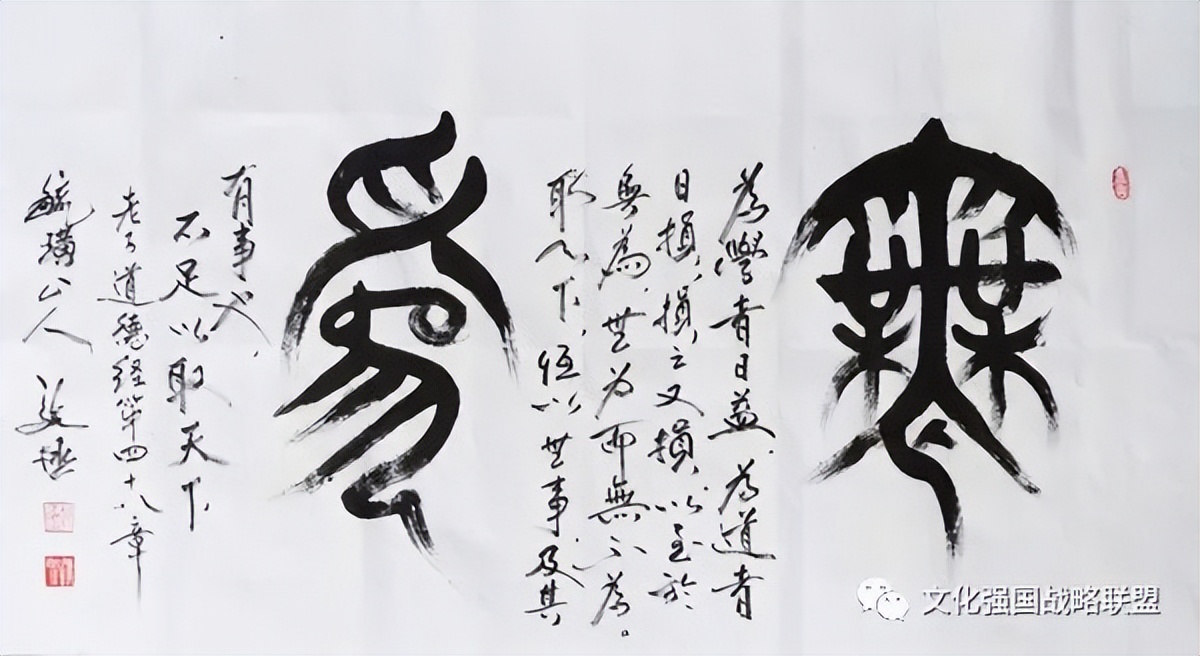 無
為學者日益,为道者
日損,損之又損,以至於
無為,無为而無不為。
取天下,恒以無事,及其
為
有事也,
不足以取天下
老子道德经第四十八章
毓璜
文化强国战略联盟